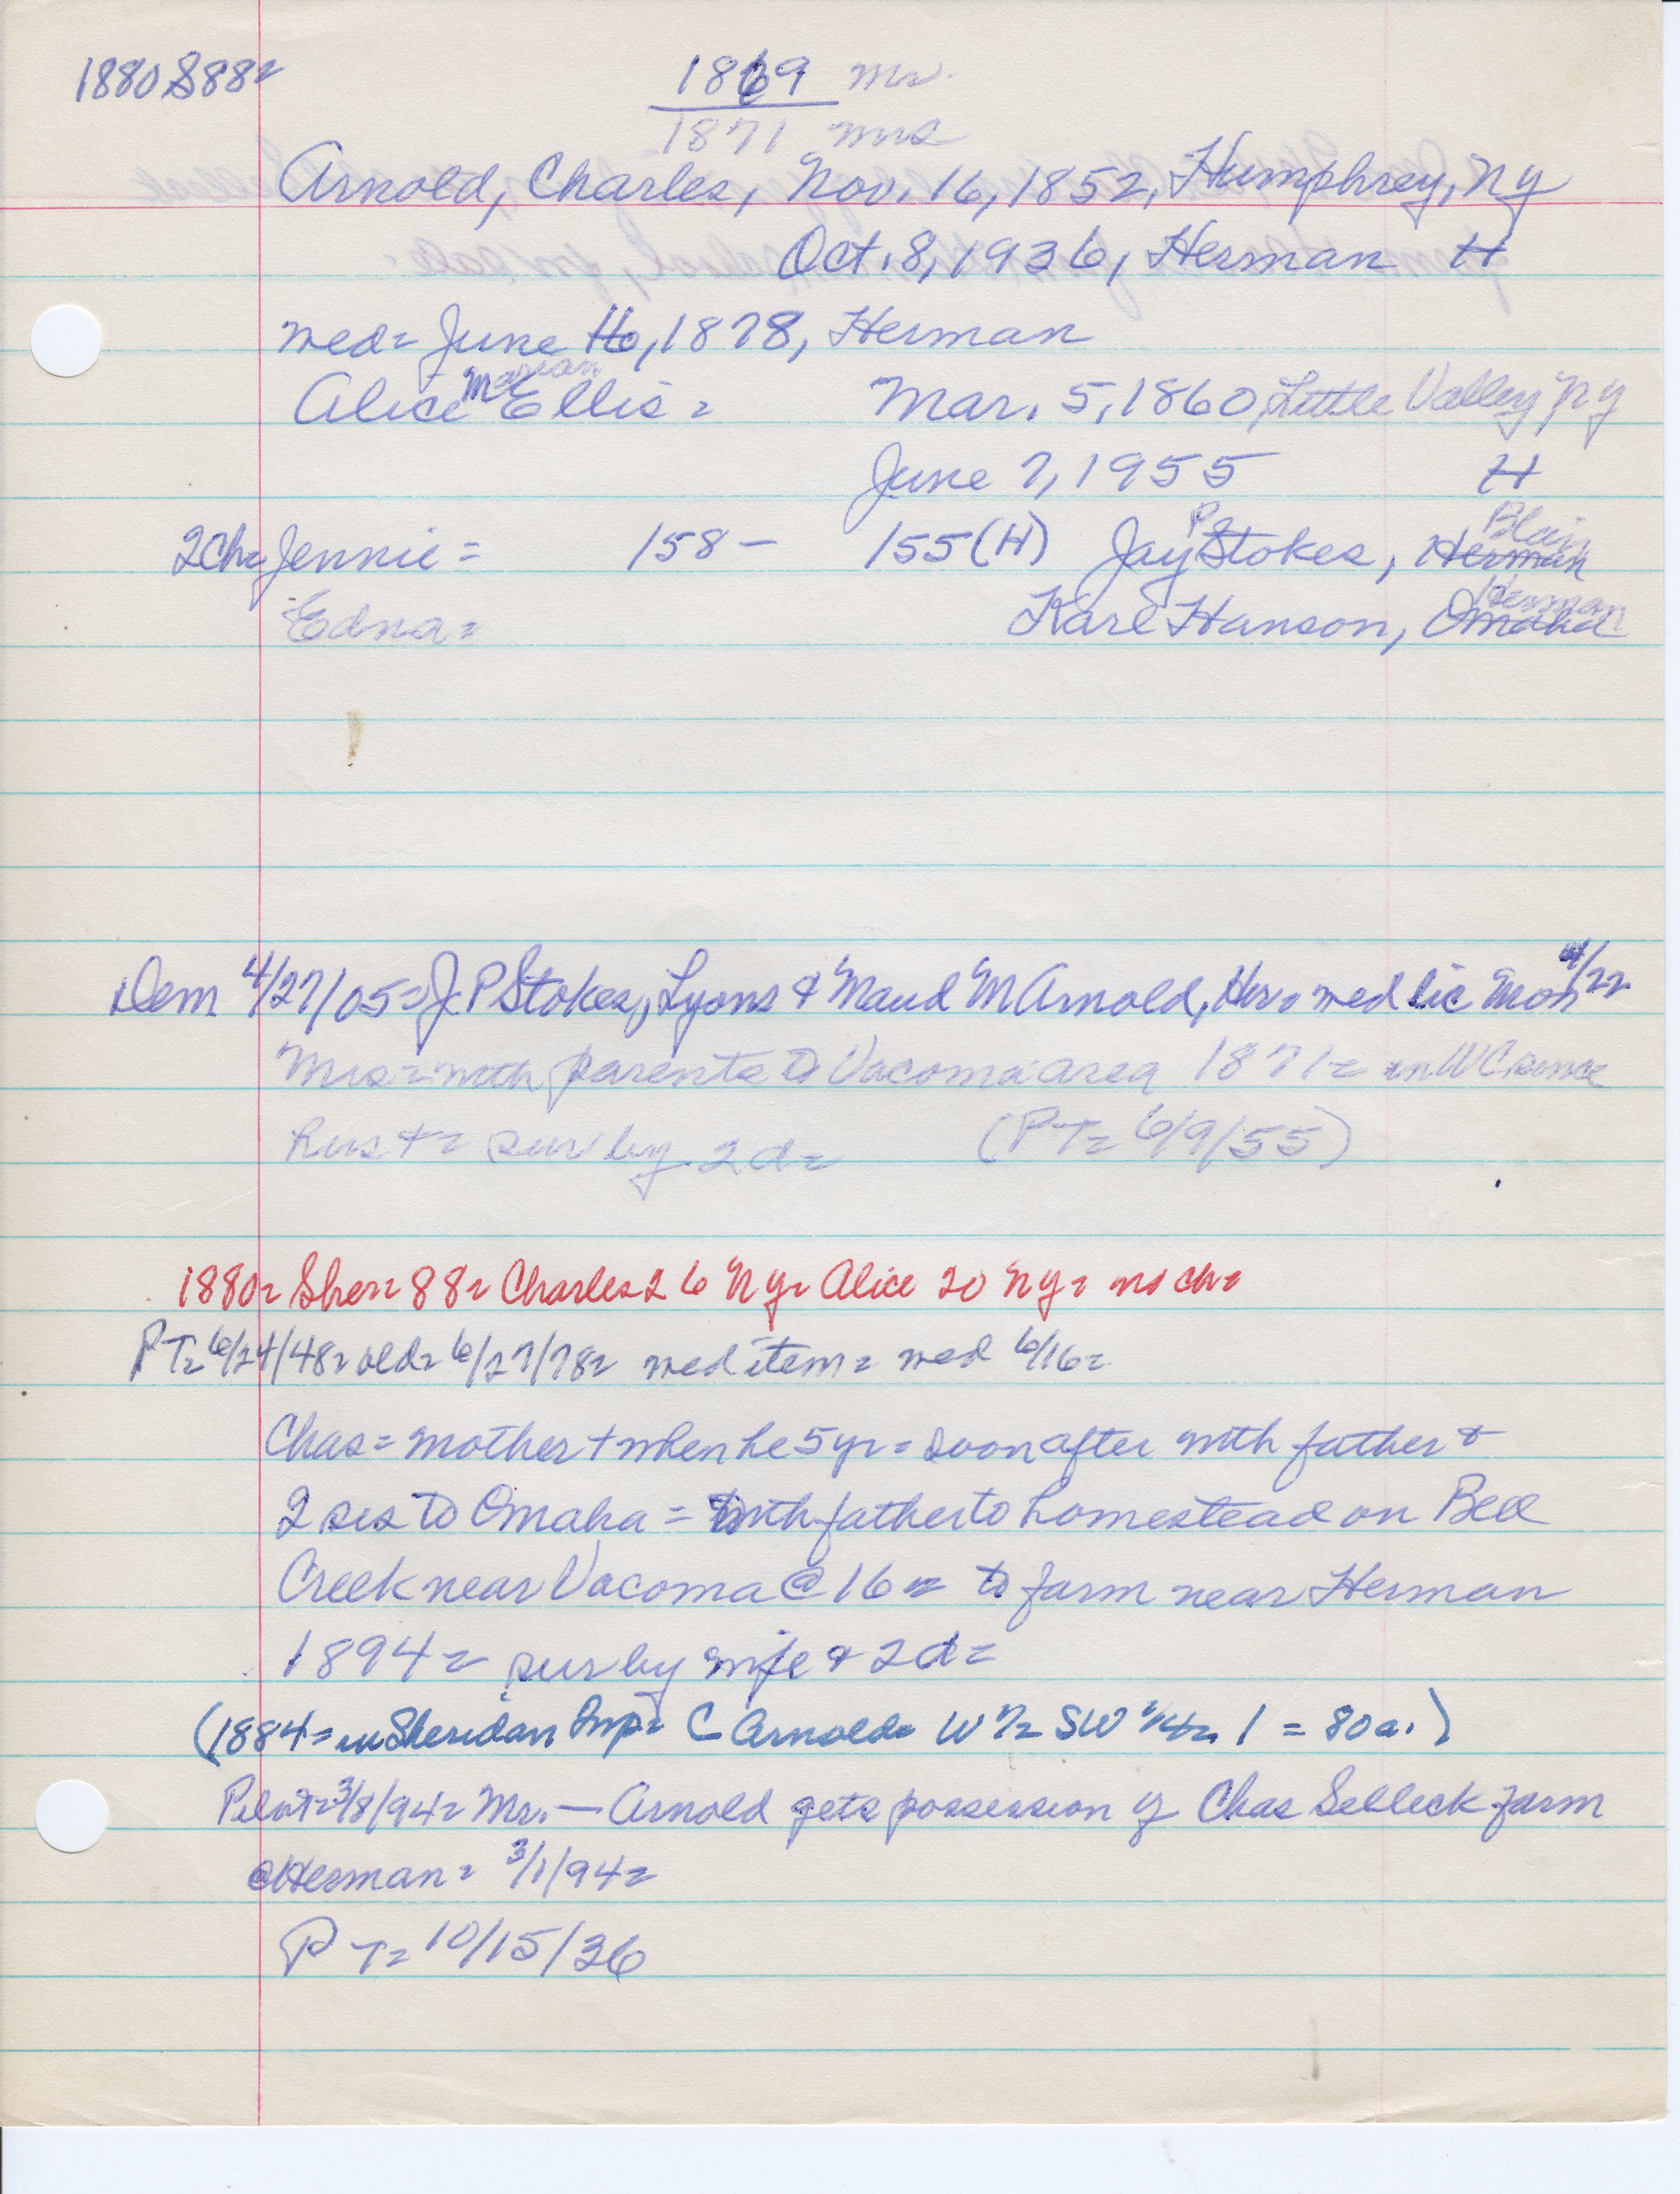 1880 S88=
1869 Mr.
1871 Mrs
Arnold, Charles, Nov. 16, 1852, Humphrey, NY
Oct. 8, 1936, Herman H
wed= June 16, 1878, Herman
Alice Marian Ellis = Mar. 5, 1860, Little Valley NY
June 7, 1955 H
2ch= Jennie = 158 - 155(H) Jay P Stokes, Herman Blair
Edna= Karl Hanson, Omaha Herman
Dem 4/27/05= J P Stokes, Lyons & Maud M Arnold, Her= wed lic Mon 4/22
Mrs= with parents to Vacoma area 1871= in WC since
Hus += sur by 2d= (PT= 6/9/55)
1880= Sher= 88= Charles 26 NY= Alice 20 NY= no ch=
PT= 6/24/48= old= 6/27/78= wed item= wed 6/16=
Chas= mother + when he 5yr= soon after with father &
2 sis to Omaha = with father to homestead on Bell
Creek near Vacoma @ 16 = to farm near Herman
1894= sur by wife & 2d=
(1884= in Sheridan Imp= C Arnold= W 1/2 SW 1/4= 1 = 80a.)
Pilot= 3/8/94= Mr. — Arnold gets possession of Chas Selleck farm
@ Herman= 3/1/94=
PT= 10/15/36